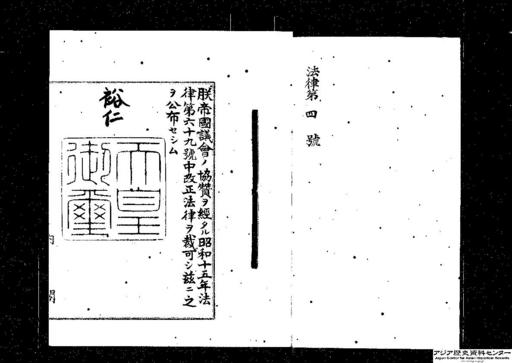 法律第四號
朕帝國議會ノ協贊ヲ經タル昭和十五年法
律第六十九號中改正法律ヲ裁可シ茲ニ之
ヲ公布セシム
裕仁
天皇
御璽
内閣
アジア歴史資料センター
Japan Center for Asian Historical Records